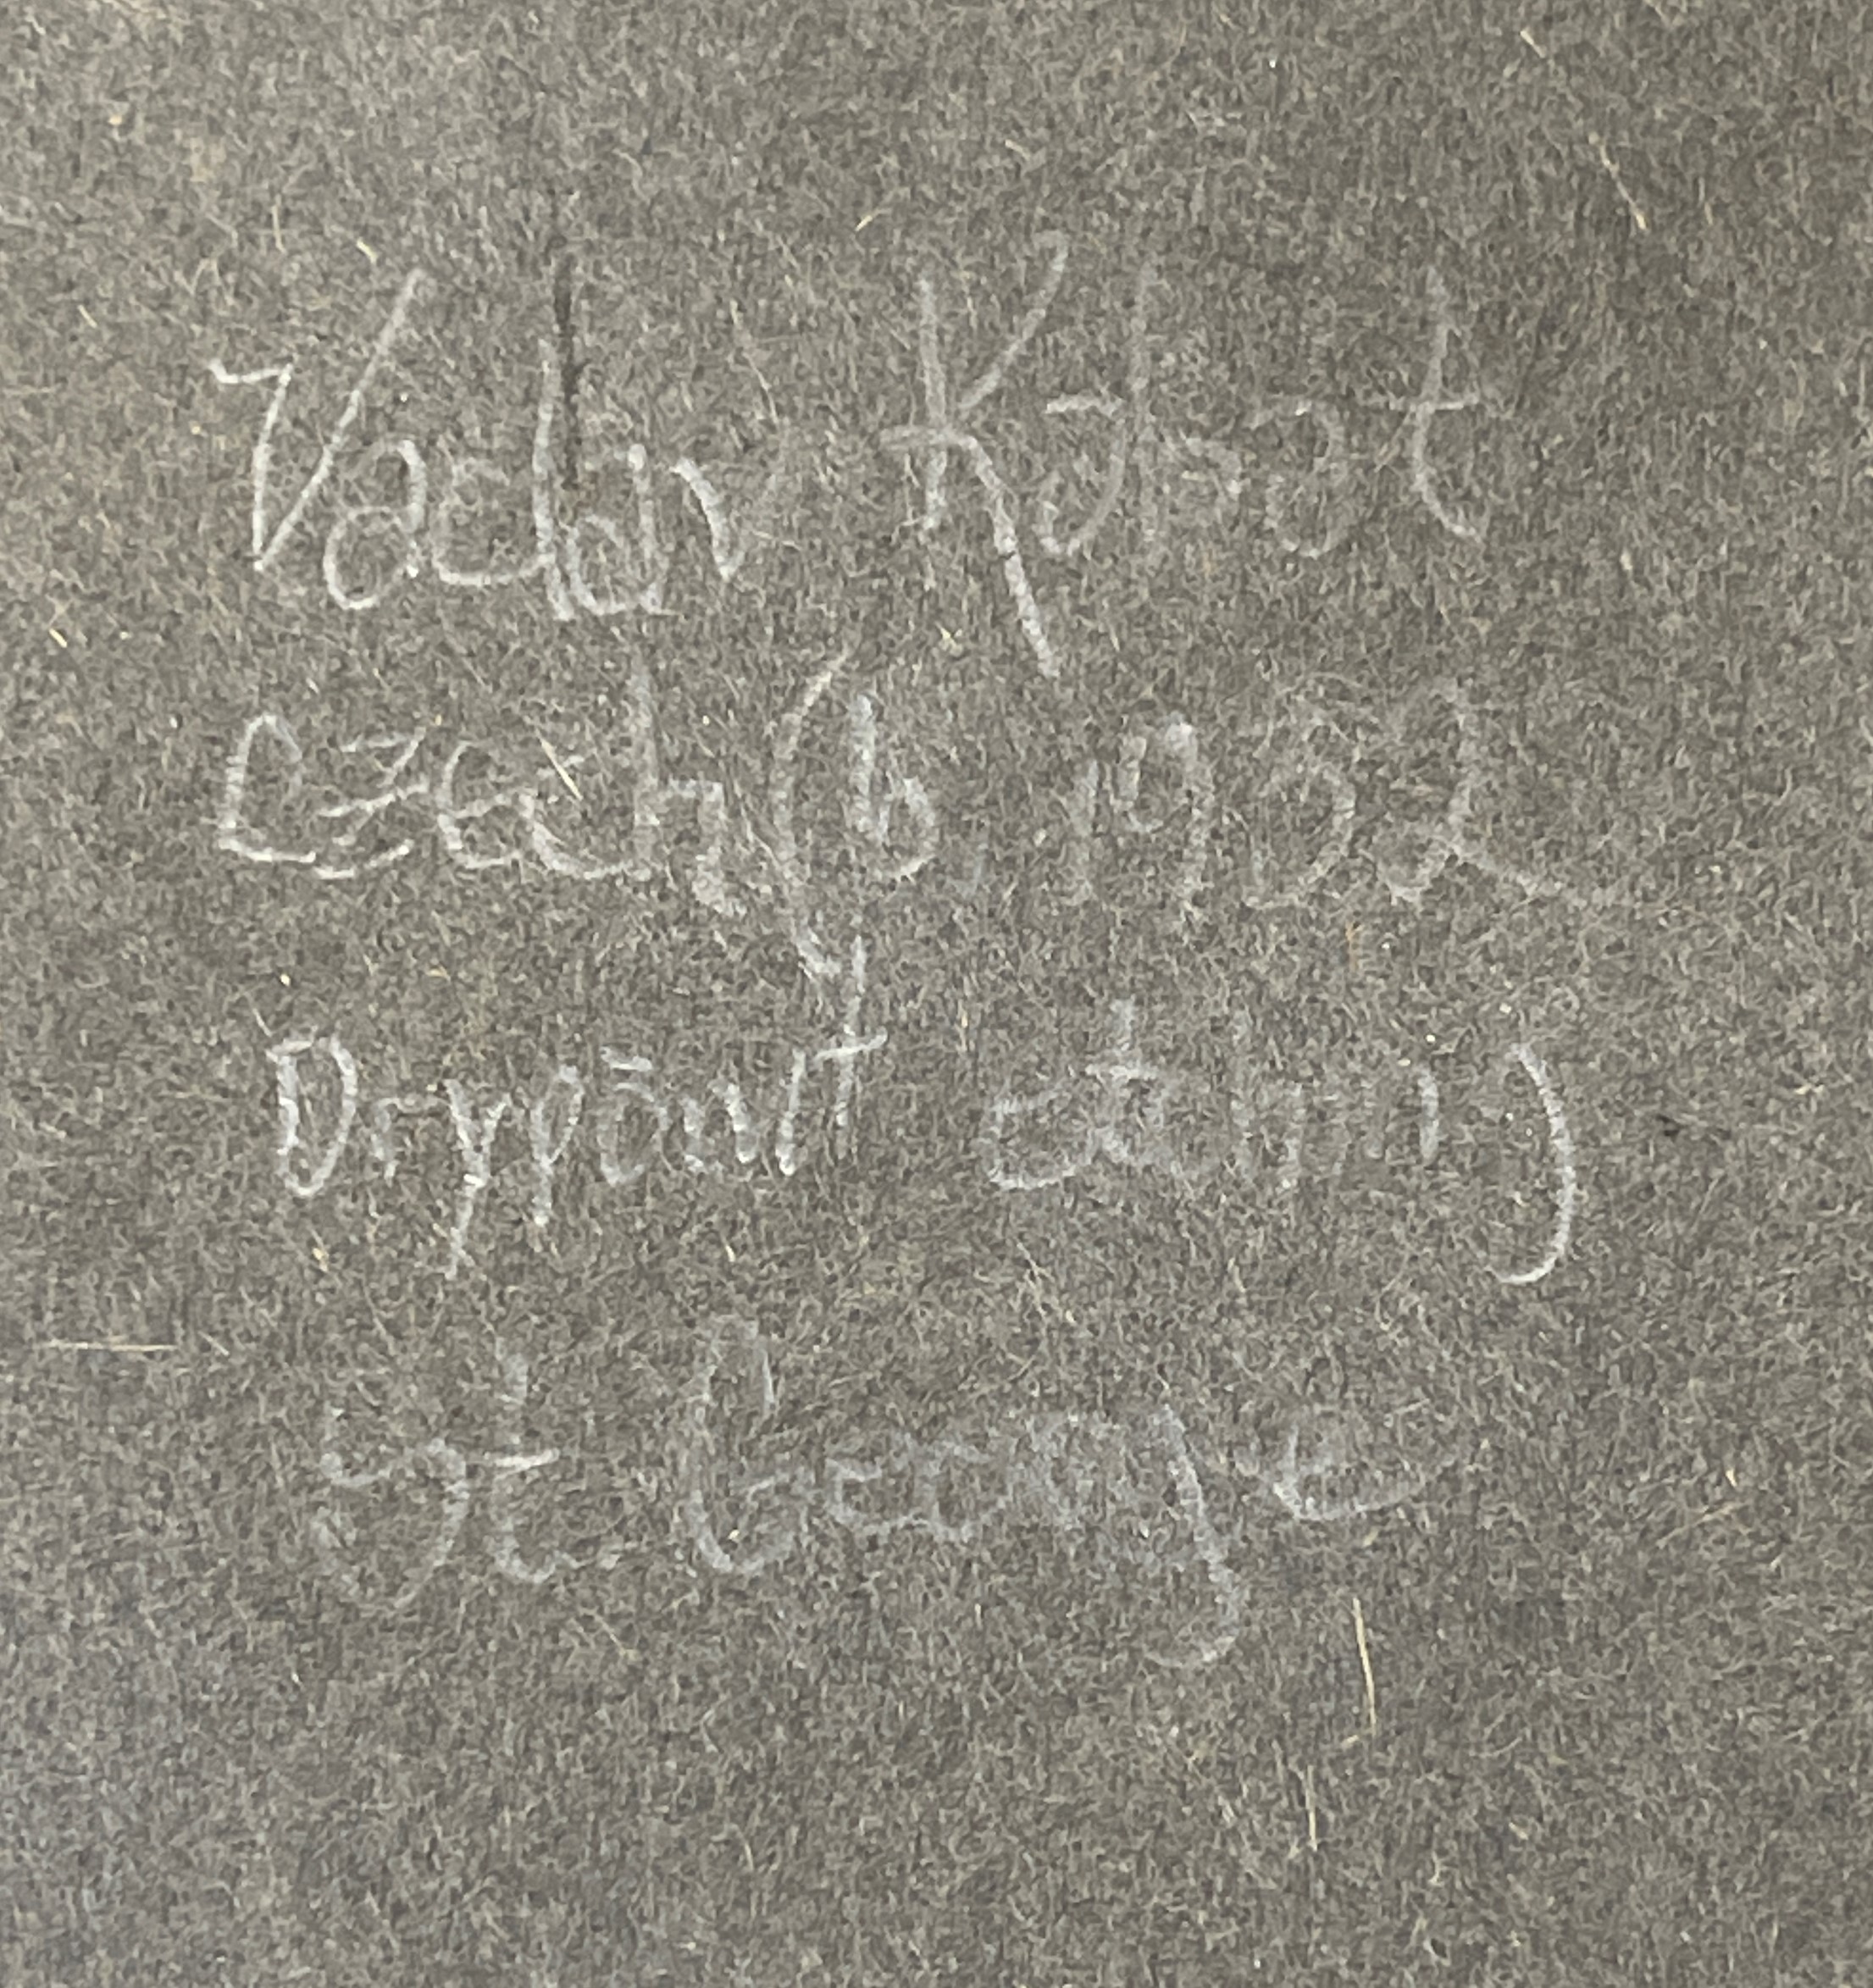 Vaclav Kotbat
Czech (b. 1952
Drypoint etching)
St. George